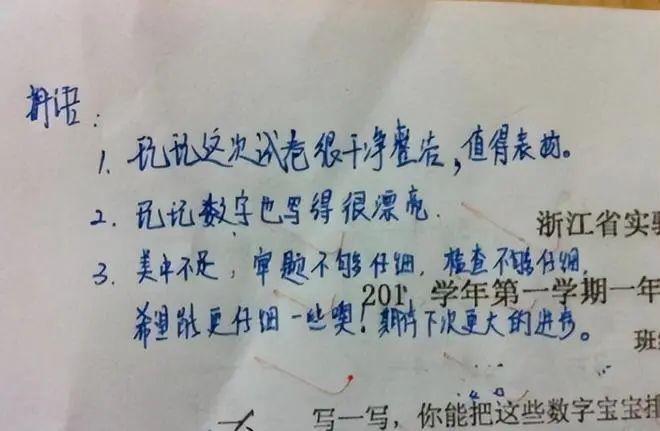 评语:
1. 玩玩这次试卷很干净整洁,值得表扬。
2. 玩玩数字也写得很漂亮.
3. 美中不足,审题不够仔细,检查不够仔细,
浙江省实
201 学年第一学期一年
希望能更仔细一些噢!期待下次更大的进步。
班
写一写,你能把这些数字宝宝排